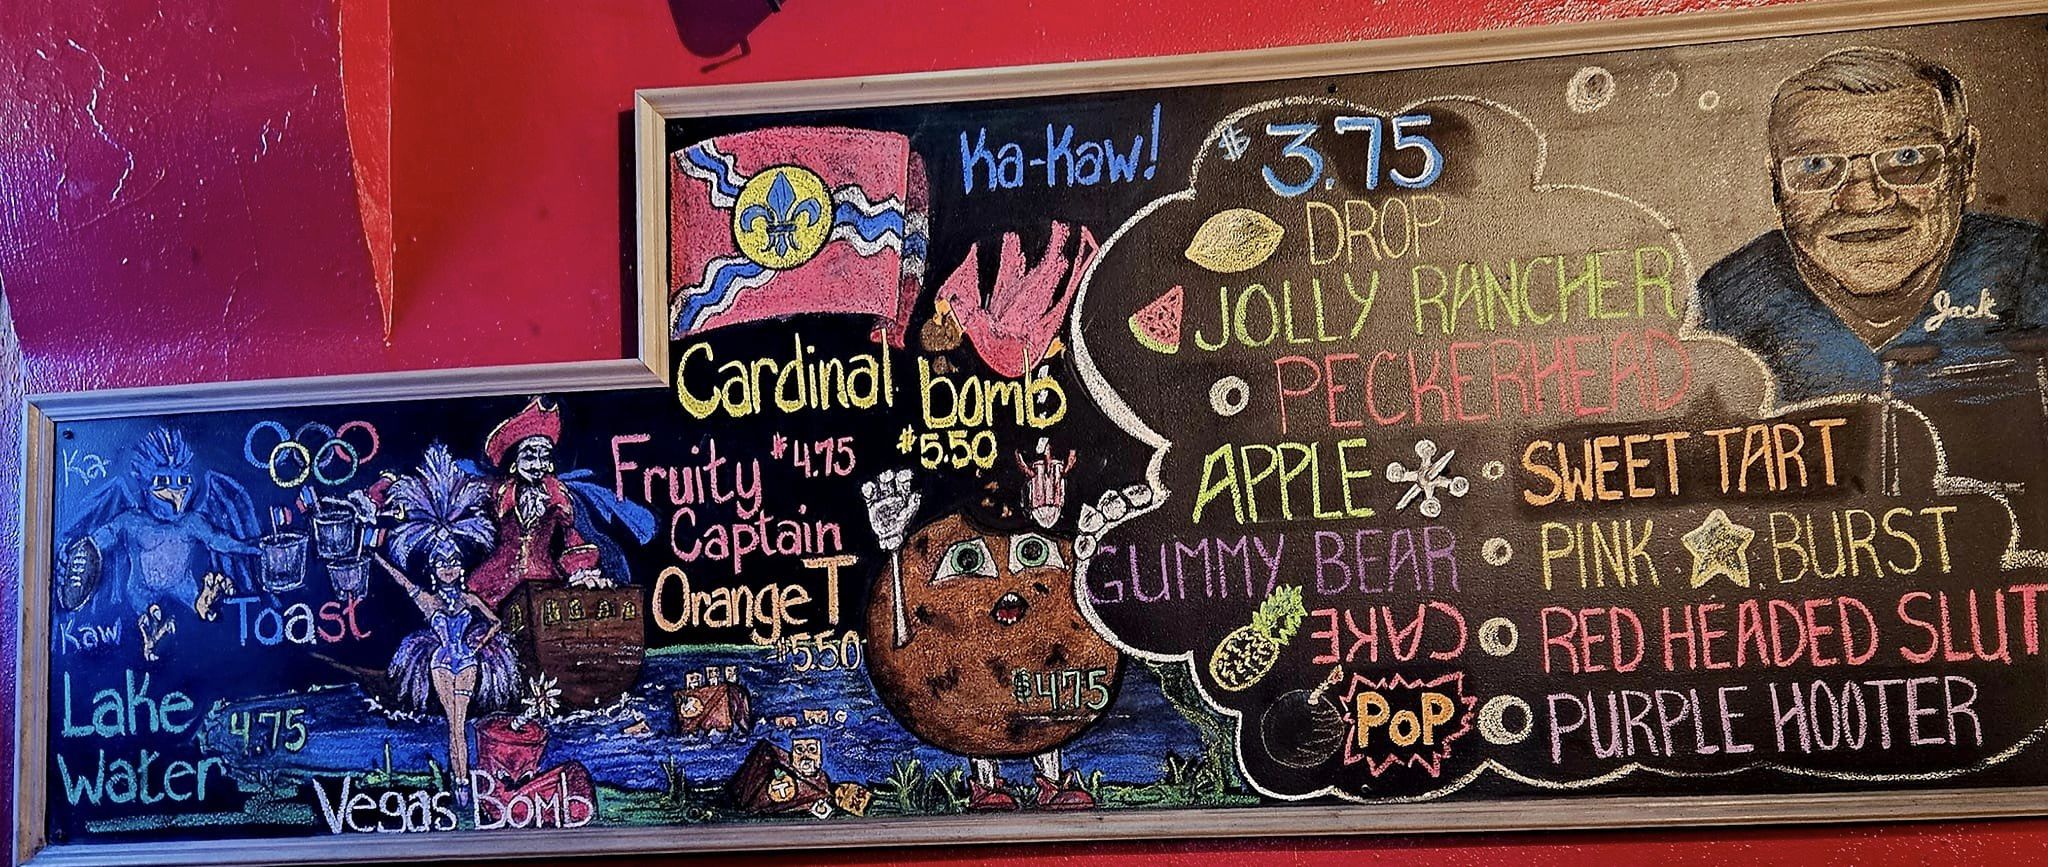 Ka-Kaw!
Cardinal bomb
$5.50
Ka
Kaw
Toast
Lake
Water
4.75
Vegas Bomb
Fruity $4.75
Captain
Orange T
$5.50
$4.75
$3.75
DROP
JOLLY RANCHER
PECKERHEAD
APPLE
SWEET TART
GUMMY BEAR
PINK BURST
CAKE
RED HEADED SLUT
POP
PURPLE HOOTER
Jack